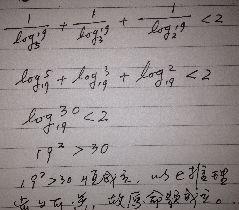 1/log₅19 + 1/log₃19 + 1/log₂19 < 2
log₁₉5 + log₁₉3 + log₁₉2 < 2
log₁₉30 < 2
19² > 30
19² > 30 恒成立,以上推理
故原命题成立。